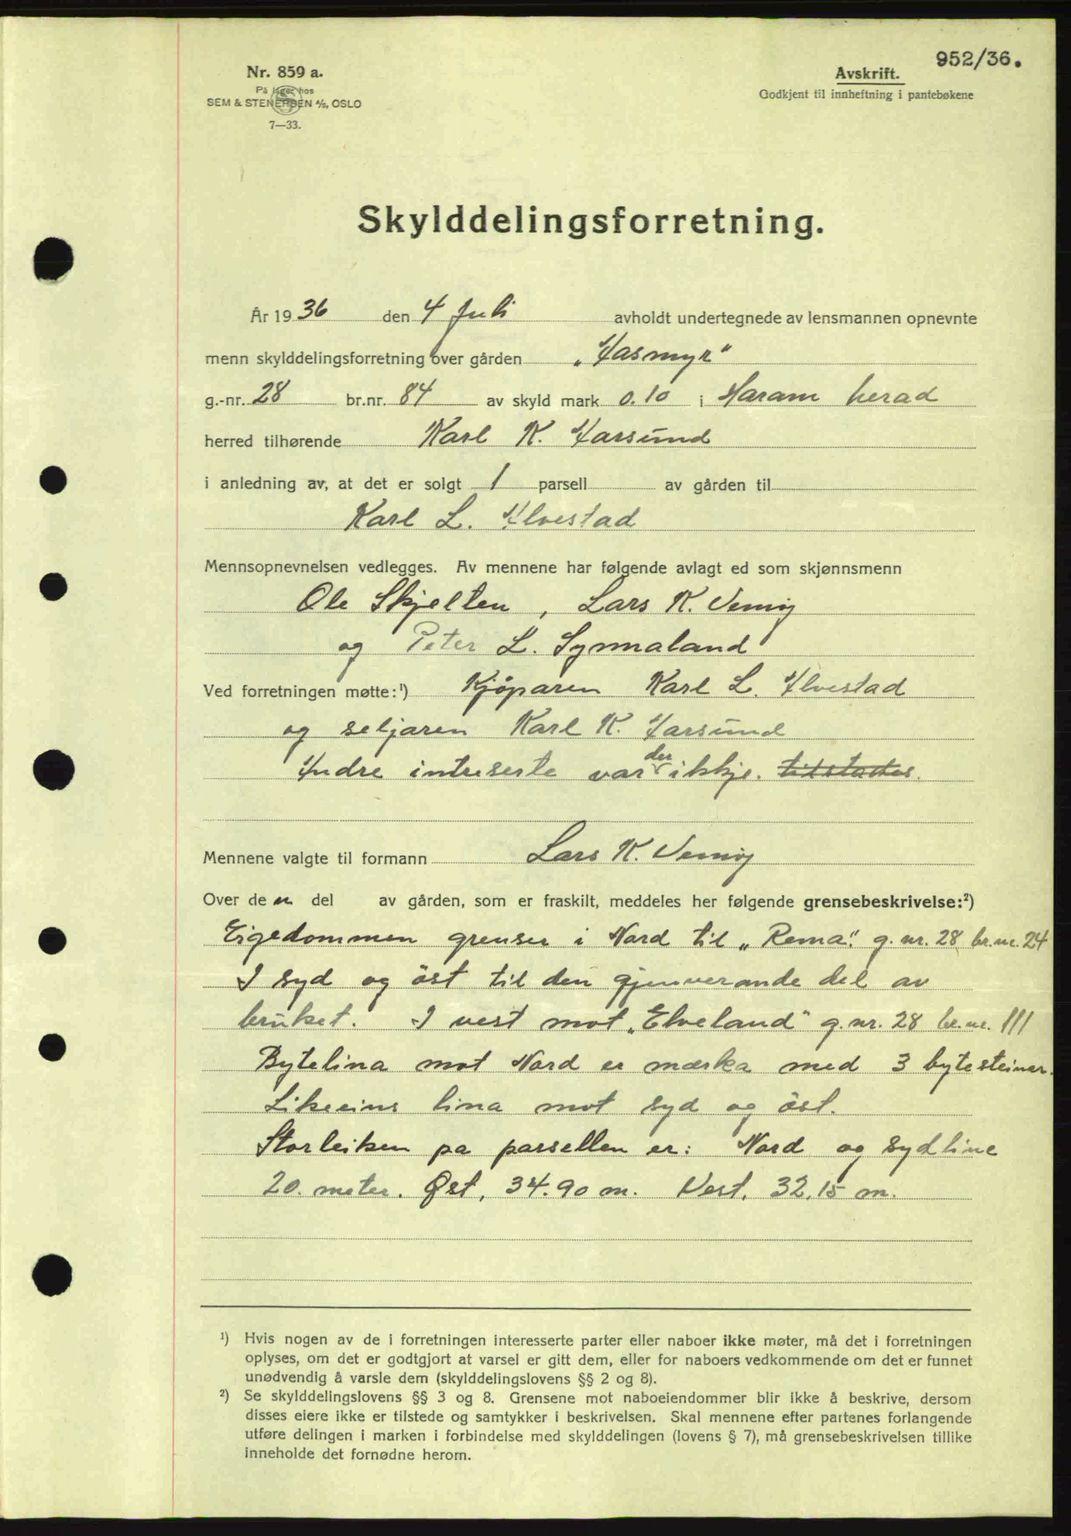 952/36.
Nr. 859 a.
På lager hos
SEM & STENERSEN A/S, OSLO
7—33.
Avskrift.
Godkjent til innheftning i pantebøkene
Skylddelingsforretning.
År 1936 den 4 Juli avholdt undertegnede av lensmannen opnevnte
menn skylddelingsforretning over gården „Aasmyr“
g.-nr. 28 br.nr. 84 av skyld mark 0.10 i Haram herad
herred tilhørende Karl K. Aarsund
i anledning av, at det er solgt 1 parsell av gården til
Karl L. Alvestad
Mennsopnevnelsen vedlegges. Av mennene har følgende avlagt ed som skjønnsmenn
Ole Skjelten, Lars K.
og Peter L. Synnaland
Ved forretningen møtte:¹) Kjøparen Karl L. Alvestad
og seljaren Karl K. Aarsund
Andre intreserte var der ikkje. tilstades.
Mennene valgte til formann Lars K.
Over den del av gården, som er fraskilt, meddeles her følgende grensebeskrivelse:²)
Eigedommen grenser i Nord til „Rema“. g.nr. 28 br.nr. 24
I syd og öst til den gjenverande del av
bruket. I vest mot „Elveland“ g.nr. 28 br.nr. 111
Bytelina mot Nord er mærka med 3 bytesteinar.
Likeeins lina mot syd og öst.
Storleiken pa parsellen er: Nord og sydline
20. meter. Øst, 34.90 m. Vest. 32,15 m.
¹) Hvis nogen av de i forretningen interesserte parter eller naboer ikke møter, må det i forretningen
oplyses, om det er godtgjort at varsel er gitt dem, eller for naboers vedkommende om det er funnet
unødvendig å varsle dem (skylddelingslovens §§ 2 og 8).
²) Se skylddelingslovens §§ 3 og 8. Grensene mot naboeiendommer blir ikke å beskrive, dersom
disses eiere ikke er tilstede og samtykker i beskrivelsen. Skal mennene efter partenes forlangende
utføre delingen i marken i forbindelse med skylddelingen (lovens § 7), må grensebeskrivelsen tillike
inneholde det fornødne herom.